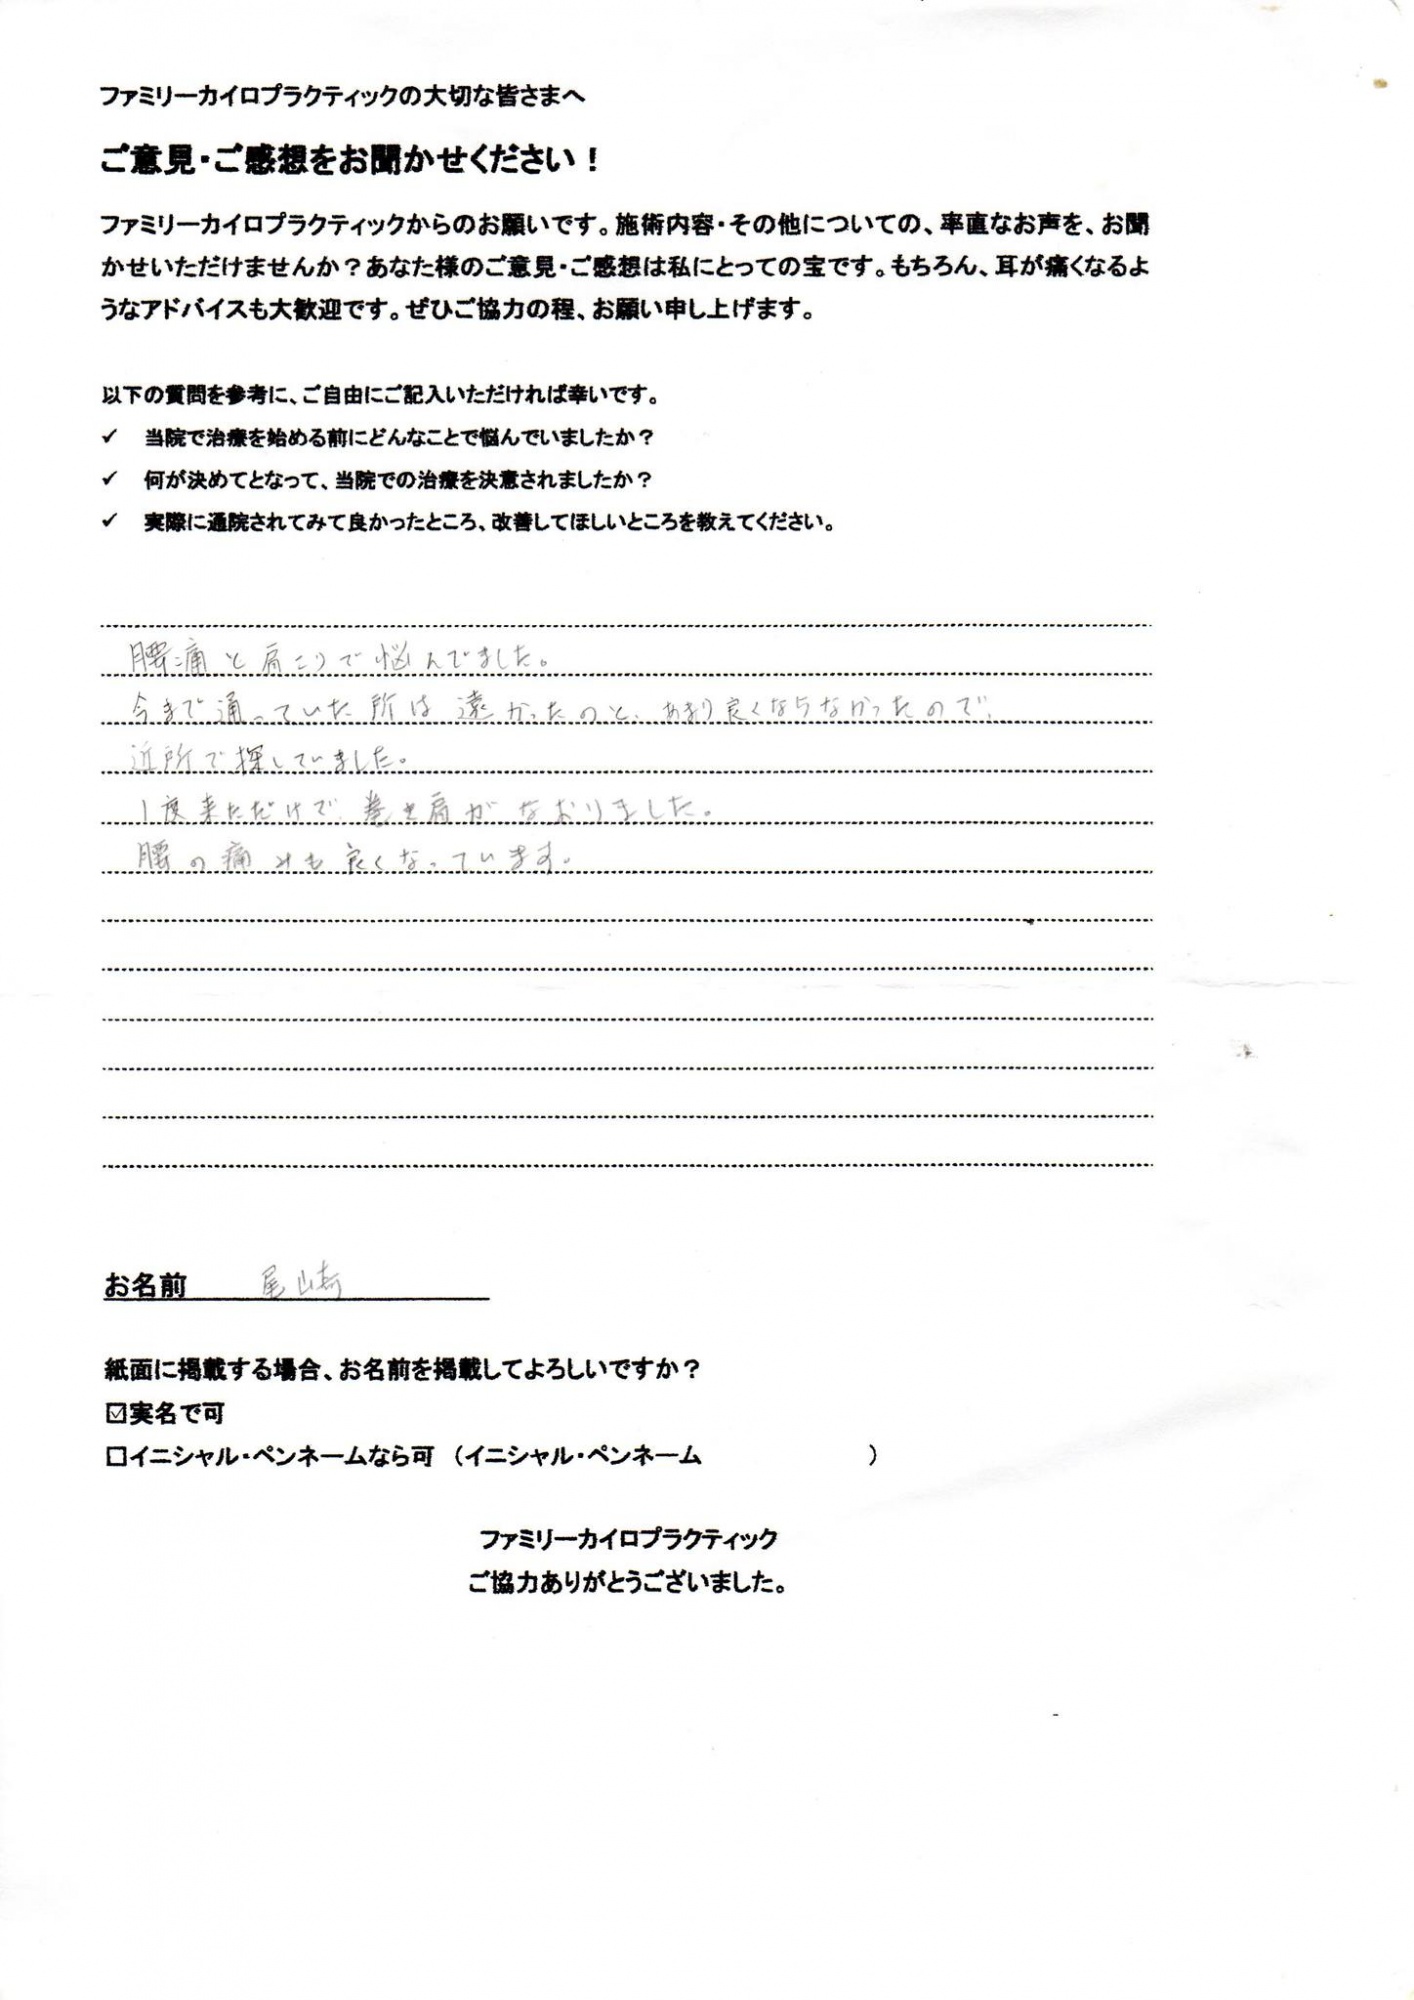 ファミリーカイロプラクティックの大切な皆さまへ
ご意見・ご感想をお聞かせください！
ファミリーカイロプラクティックからのお願いです。施術内容・その他についての、率直なお声を、お聞
かせいただけませんか？あなた様のご意見・ご感想は私にとっての宝です。もちろん、耳が痛くなるよ
うなアドバイスも大歓迎です。ぜひご協力の程、お願い申し上げます。
以下の質問を参考に、ご自由にご記入いただければ幸いです。
✓ 当院で治療を始める前にどんなことで悩んでいましたか？
✓ 何が決めてとなって、当院での治療を決意されましたか？
✓ 実際に通院されてみて良かったところ、改善してほしいところを教えてください。
腰痛と肩こりで悩んでました。
今まで通っていた所は遠かったのと、あまり良くならなかったので、
近所で探していました。
1度来ただけで、巻き肩がなおりました。
腰の痛みも良くなっています。
お名前 尾崎
紙面に掲載する場合、お名前を掲載してよろしいですか？
☑実名で可
□イニシャル・ペンネームなら可 （イニシャル・ペンネーム ）
ファミリーカイロプラクティック
ご協力ありがとうございました。